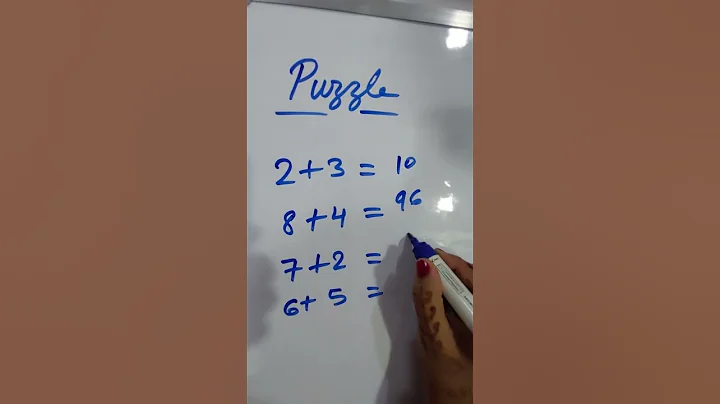 Puzzle
2+3 = 10
8+4 = 96
7+2 =
6+5 =